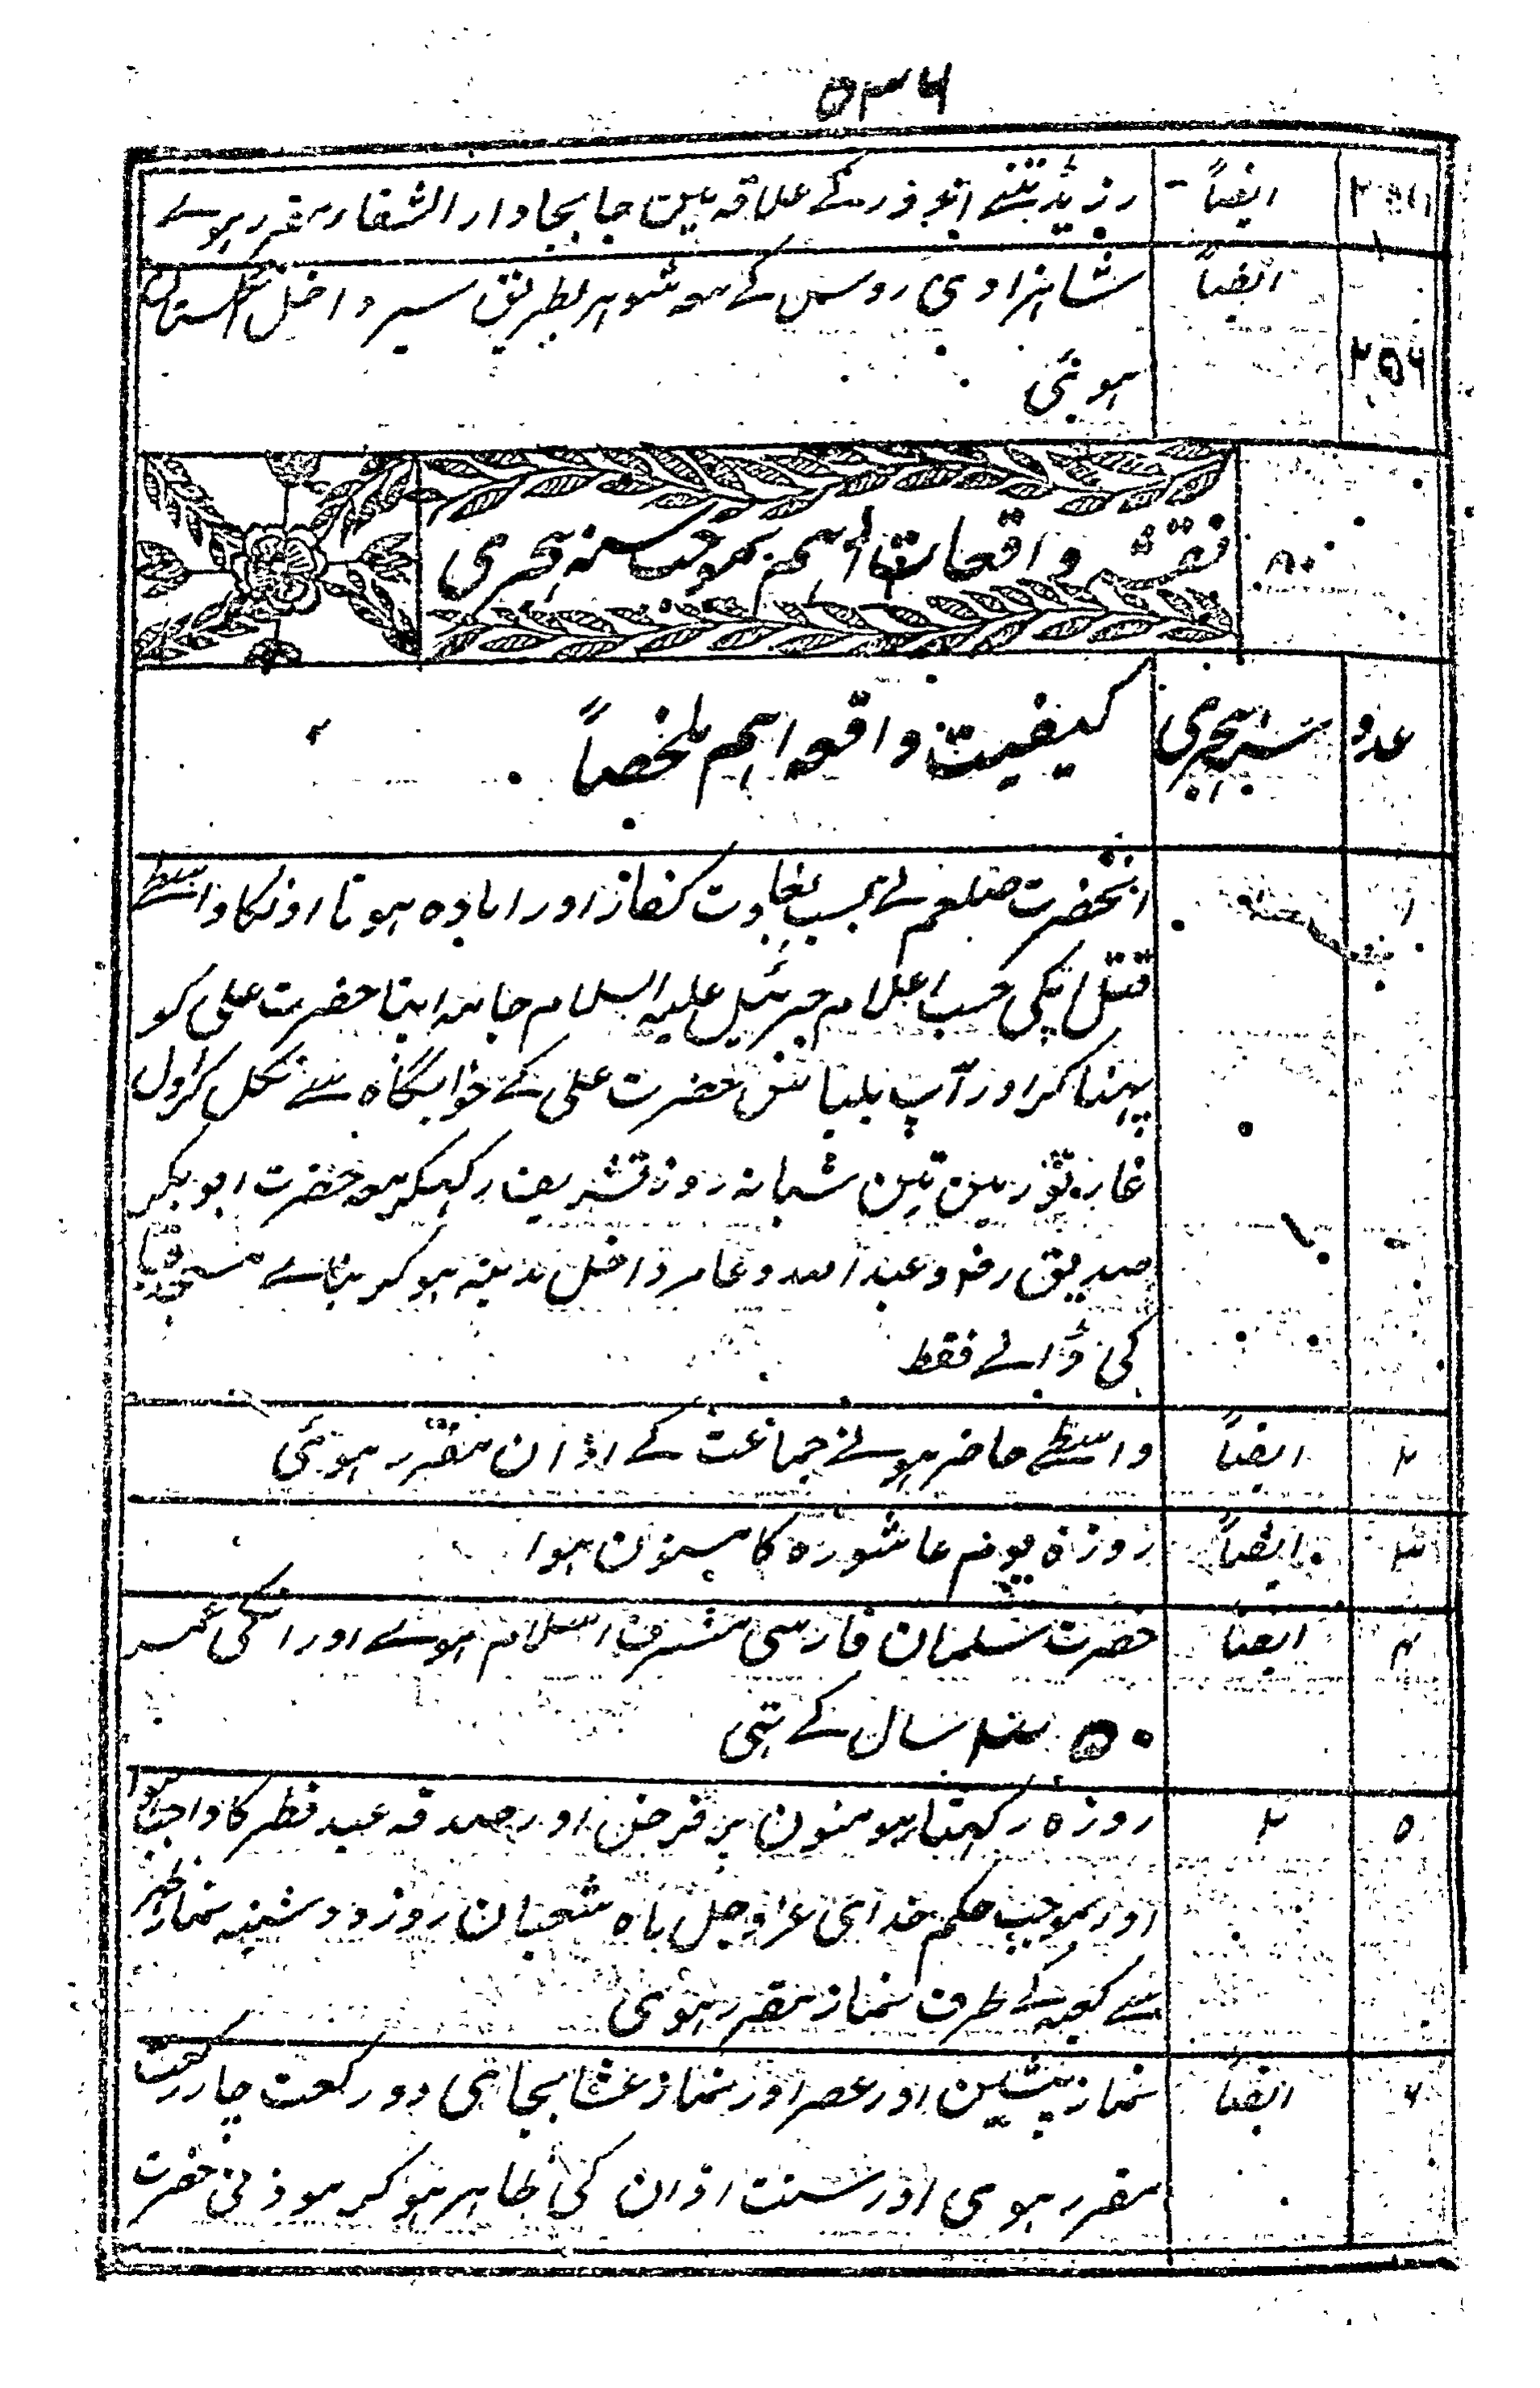 ۵۳۶
ایضاً رزیڈنٹے اندور کے علاقہ مین جابجا دار الشفار مقرر ہوے
۲۵۶ ایضاً شاہزادی روس کے معہ شوہر بطریق سیر داخل
ہوئی
نقشہ واقعات اہم بموجب سنہ ہجری
عدد سنہ ہجری کیفیت واقعہ اہم ملخصاً
۱ انحضرت صلعم نے بسبب بغاوت کفار اور امادہ ہونا اونکا واسطے
قتل اپکی حسب اعلام جبرئیل علیہ السلام جامہ اپنا حضرت علی کو
پہنا کر اور آپ بلباس حضرت علی کے خوابگاہ سے نکل کر اول
غار ثور مین تین شبانہ روز تشریف رکہکر معہ حضرت ابو بکر
صدیق رضہ و عبد اللہ و عامر داخل مدینہ ہو کر بناے مسجد قبا
کی ڈالے فقط
۲ ایضاً واسطے حاضر ہونے جماعت کے اذان مقرر ہوئی
۳ ایضاً روزہ یوم عاشورہ کا مسنون ہوا
۴ ایضاً حضرت سلمان فارسی مشرف اسلام ہوے اور انکی عمر
۲۵۰ سال کے تہی
۵ ۲ روزہ رکہنا مومنون پر فرض اور صدقہ عید فطر کا واجب ہوا
اور بموجب حکم خدای عز و جل ماہ شعبان روز دوشنبہ نماز ظہر
سے کعبہ کے طرف نماز مقرر ہوئی
۶ ایضاً نماز پیشین اور عصر اور نماز عشا بجای دو رکعت چار رکعت
مقرر ہوی اور سنت اذان کی ظاہر ہو کر موذنی حضرت